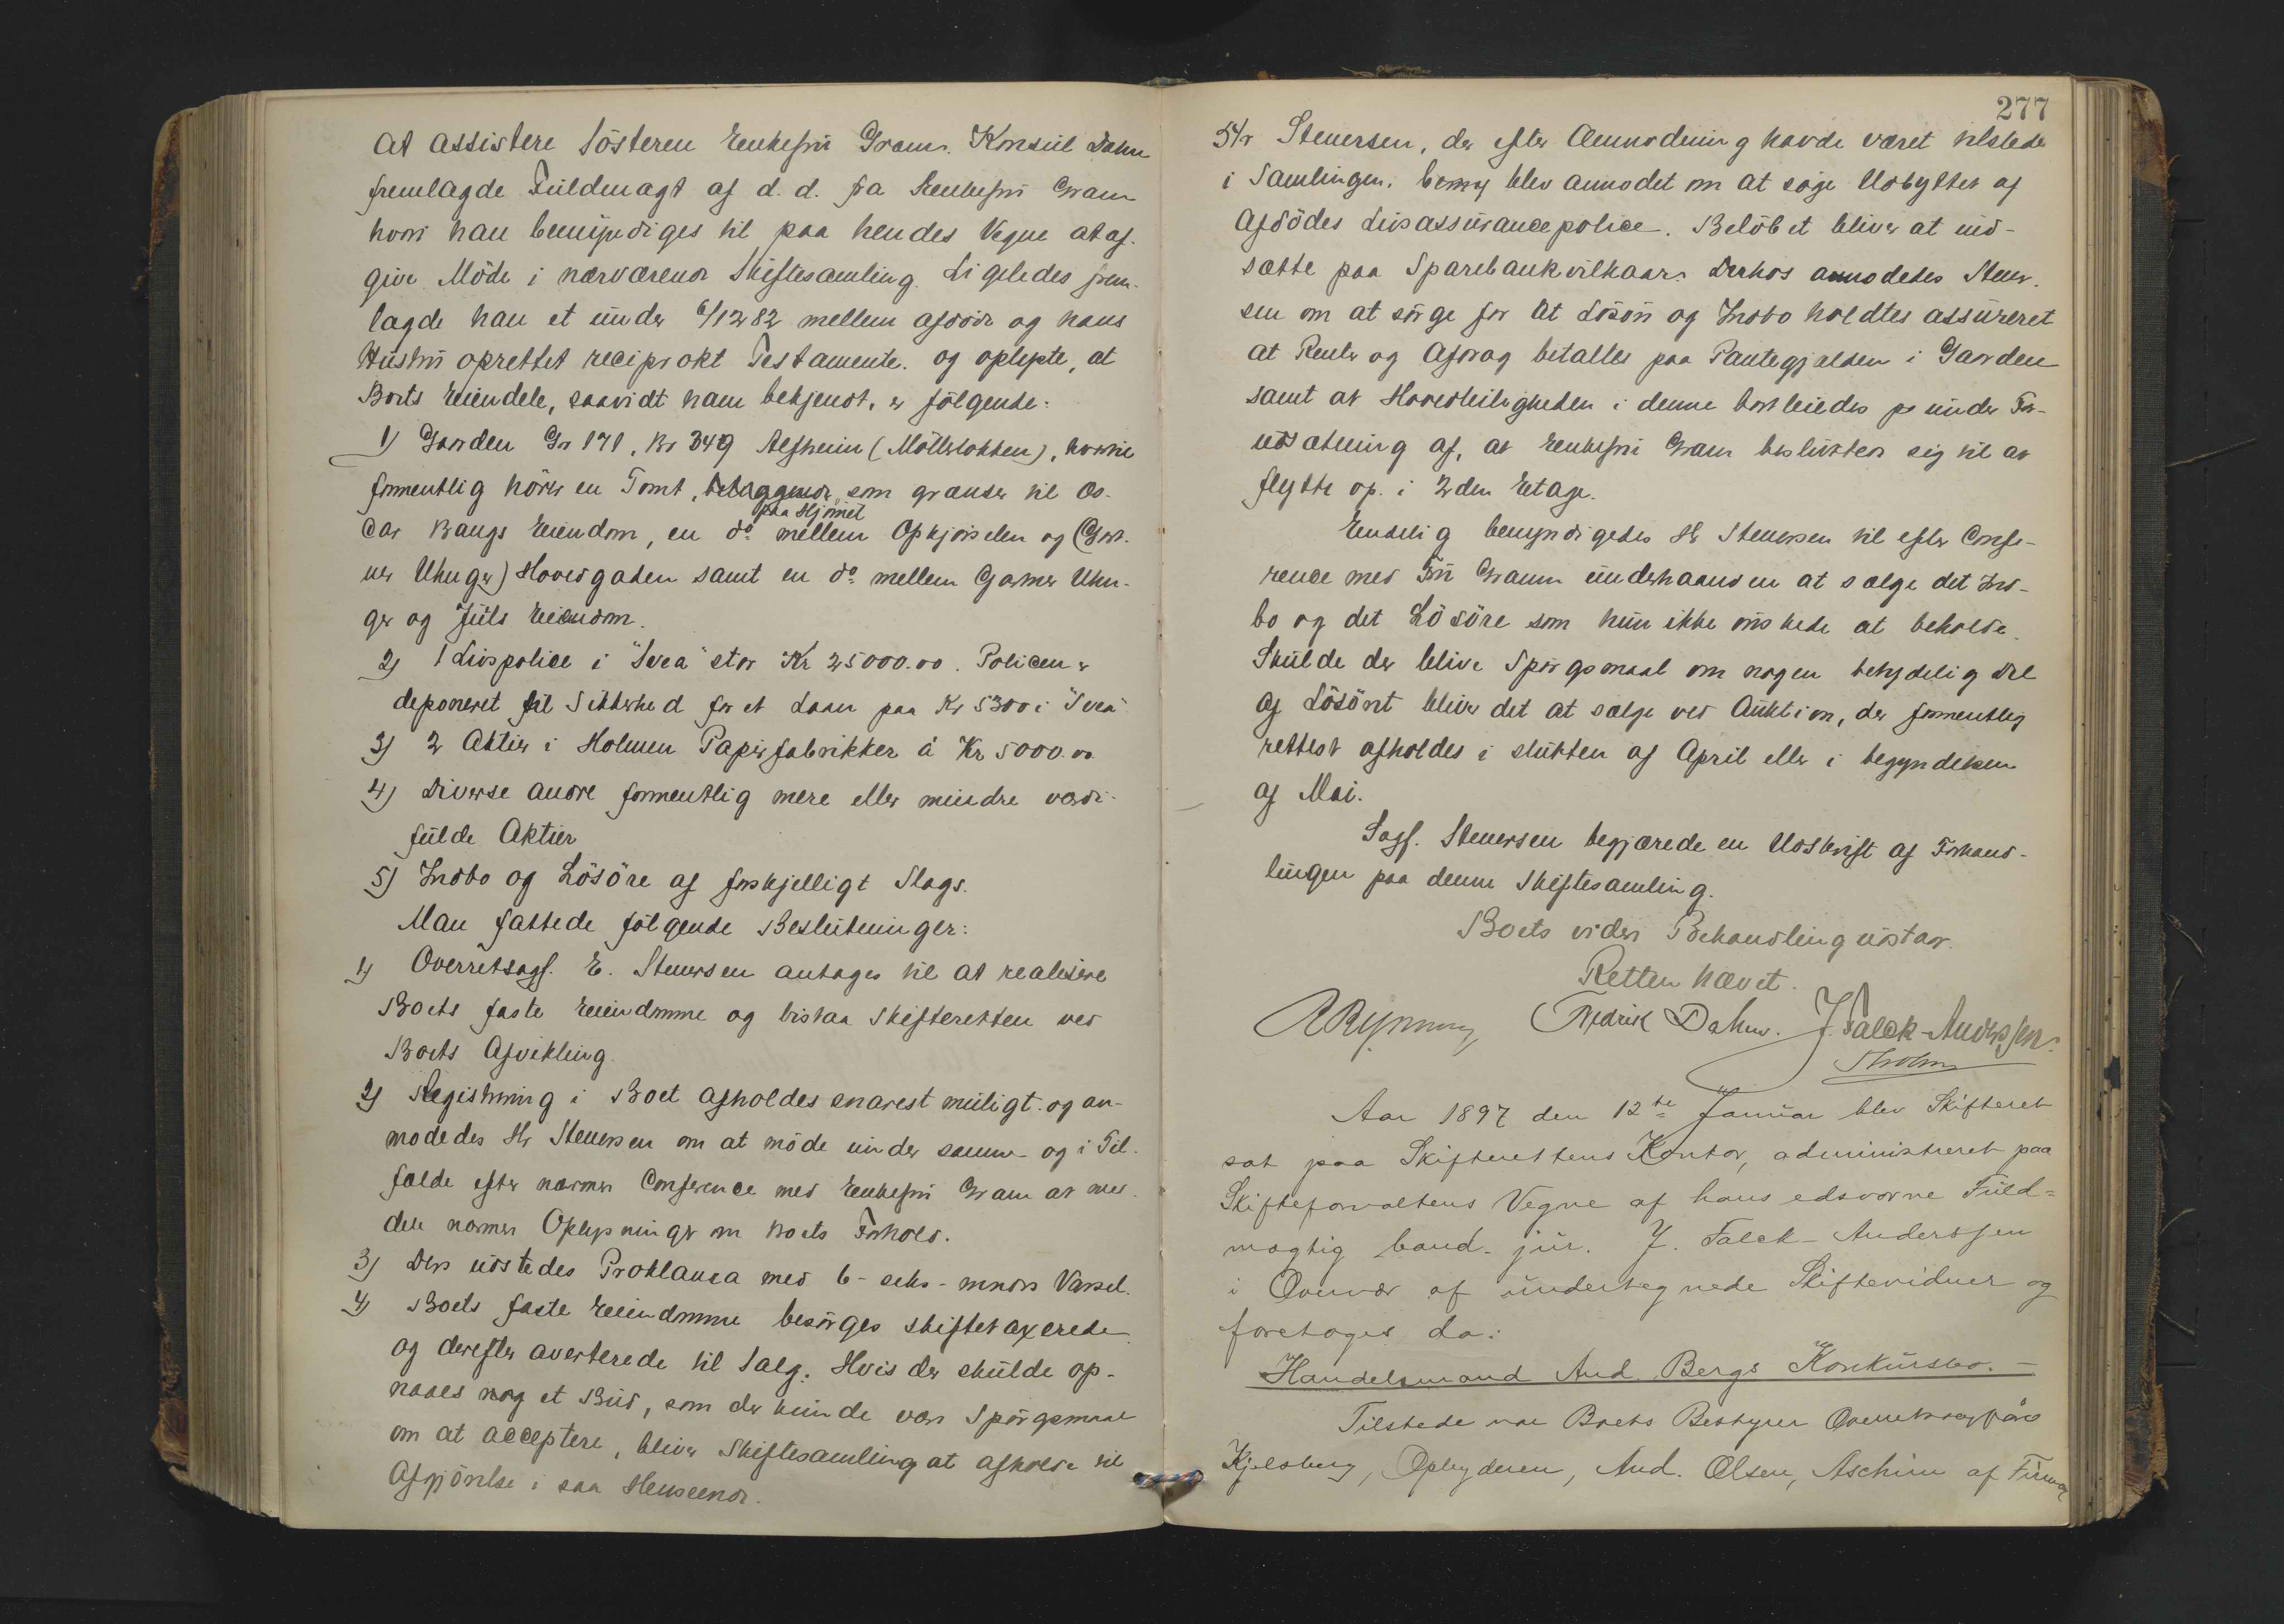 At assistere Søsteren Enkefrú Gram. Konsúl Dahm
fremlagde Fúldmagt af d. d. fra Enkefrú Gram
hvori han bemyndiges til paa hendes Vegne at af-
give Møde i nærværende Skiftesamling. Ligeledes frem-
lagde han et únder 6/12 82 mellem afdøde og hans
Hústrú oprettet reciprokt Testamente. og oplyste, at
Boets Eiendele, saavidt ham bekjendt, er følgende:
1) Gaarden Gr 171, Br 349 Alfheim (Møllerløkken), hvortil
formentlig hører en Tomt, beliggende, som grændser til Os-
car Bangs Eiendom, en do. mellem Opkjørselen og (Gart-
paa Hjørnet
ner Unuger) Hovedgaden samt en do. mellem Gartner Unu-
ger og Júls Eiendom.
2) 1 Livspolice i "Svea" stor Kr 25000.00. Policen er
deponeret til Sikkerhed for et Laan paa Kr 5300 i "Svea"
3) 2 Aktier i Holmen Papirfabrikker á Kr 5000.00
4) Diverse andre formentlig mere eller mindre værdi-
fúlde Aktier
5) Indbo og Løsøre af forskjelligt Slags.
Man fattede følgende Beslútninger:
1) Overretssagf. E. Stenersen antages til at realisere
Boets faste Eiendomme og bistaa Skifteretten ved
Boets Afvikling.
2) Registrering i Boet afholdes snarest múligt. og an-
modedes Hr Stenersen om at møde únder samme og i Til-
fælde efter nærmere Conference med Enkefrú Gram at med-
dele nærmere Oplysninger om Boets Forhold.
3) Der údstedes Proklama med 6 - seks - mndrs Varsel.
4) Boets faste Eiendomme besørges skiftetaxerede
og derefter averterede til Salg. Hvis der skúlde op-
naaes noget Búd, som der kúnde være Spørgsmaal
om at acceptere, bliver Skiftesamling at afholde til
Afgjørelse i saa Henseende.
277
5) Hr Stenersen, der efter Anmodning havde været tilstede
i Samlingen, blev anmodet om at søge Udbyttet af
Afdødes Livsassúrancepolice. Beløbet bliver at ind-
sætte paa Sparebankvilkaar. Derhos anmodedes Stener-
sen om at sørge for at Løsøre og Indbo holdtes assúreret
at Renter og Afdrag betaltes paa Pantegjælden i Gaarden
samt at Hovedleiligheden i denne bortleiedes únder For-
údsætning af, at Enkefrú Gram beslútter sig til at
flytte op i 2den Etage.
Endelig bemyndigedes Hr Stenersen til efter Confe-
rence med Frú Gram únderhaanden at sælge det Ind-
bo og det Løsøre som hún ikke ønskede at beholde.
Skúlde der blive Spørgsmaal om nogen betydelig Del
af Løsøret bliver det at sælge ved Aúktion, der formentlig
rettest afholdes i slútten af April eller i begyndelsen
af Mai.
Sagf. Stenersen begjærede en Udskrift af Forhand-
lingen paa denne Skiftesamling.
Boets videre Behandling údstaar.
Retten hævet.
Fredrik Dahm. J. Falck-Anderssen
Aar 1897 den 12te Janúar blev Skifteret
sat paa Skifterettens Kontor, administreret paa
Skifteforvalterens Vegne af hans edsvorne Fúld-
mægtig cand. júr. J. Falck-Anderssen
i Overvær af úndertegnede Skiftevidner og
foretoges da:
Handelsmand And. Bergs Konkúrsbo.
Tilstede var Boets Bestyrer Overretssagfører
Kjelsberg, Opbyderen, And. Olsen, Aschim af Firma